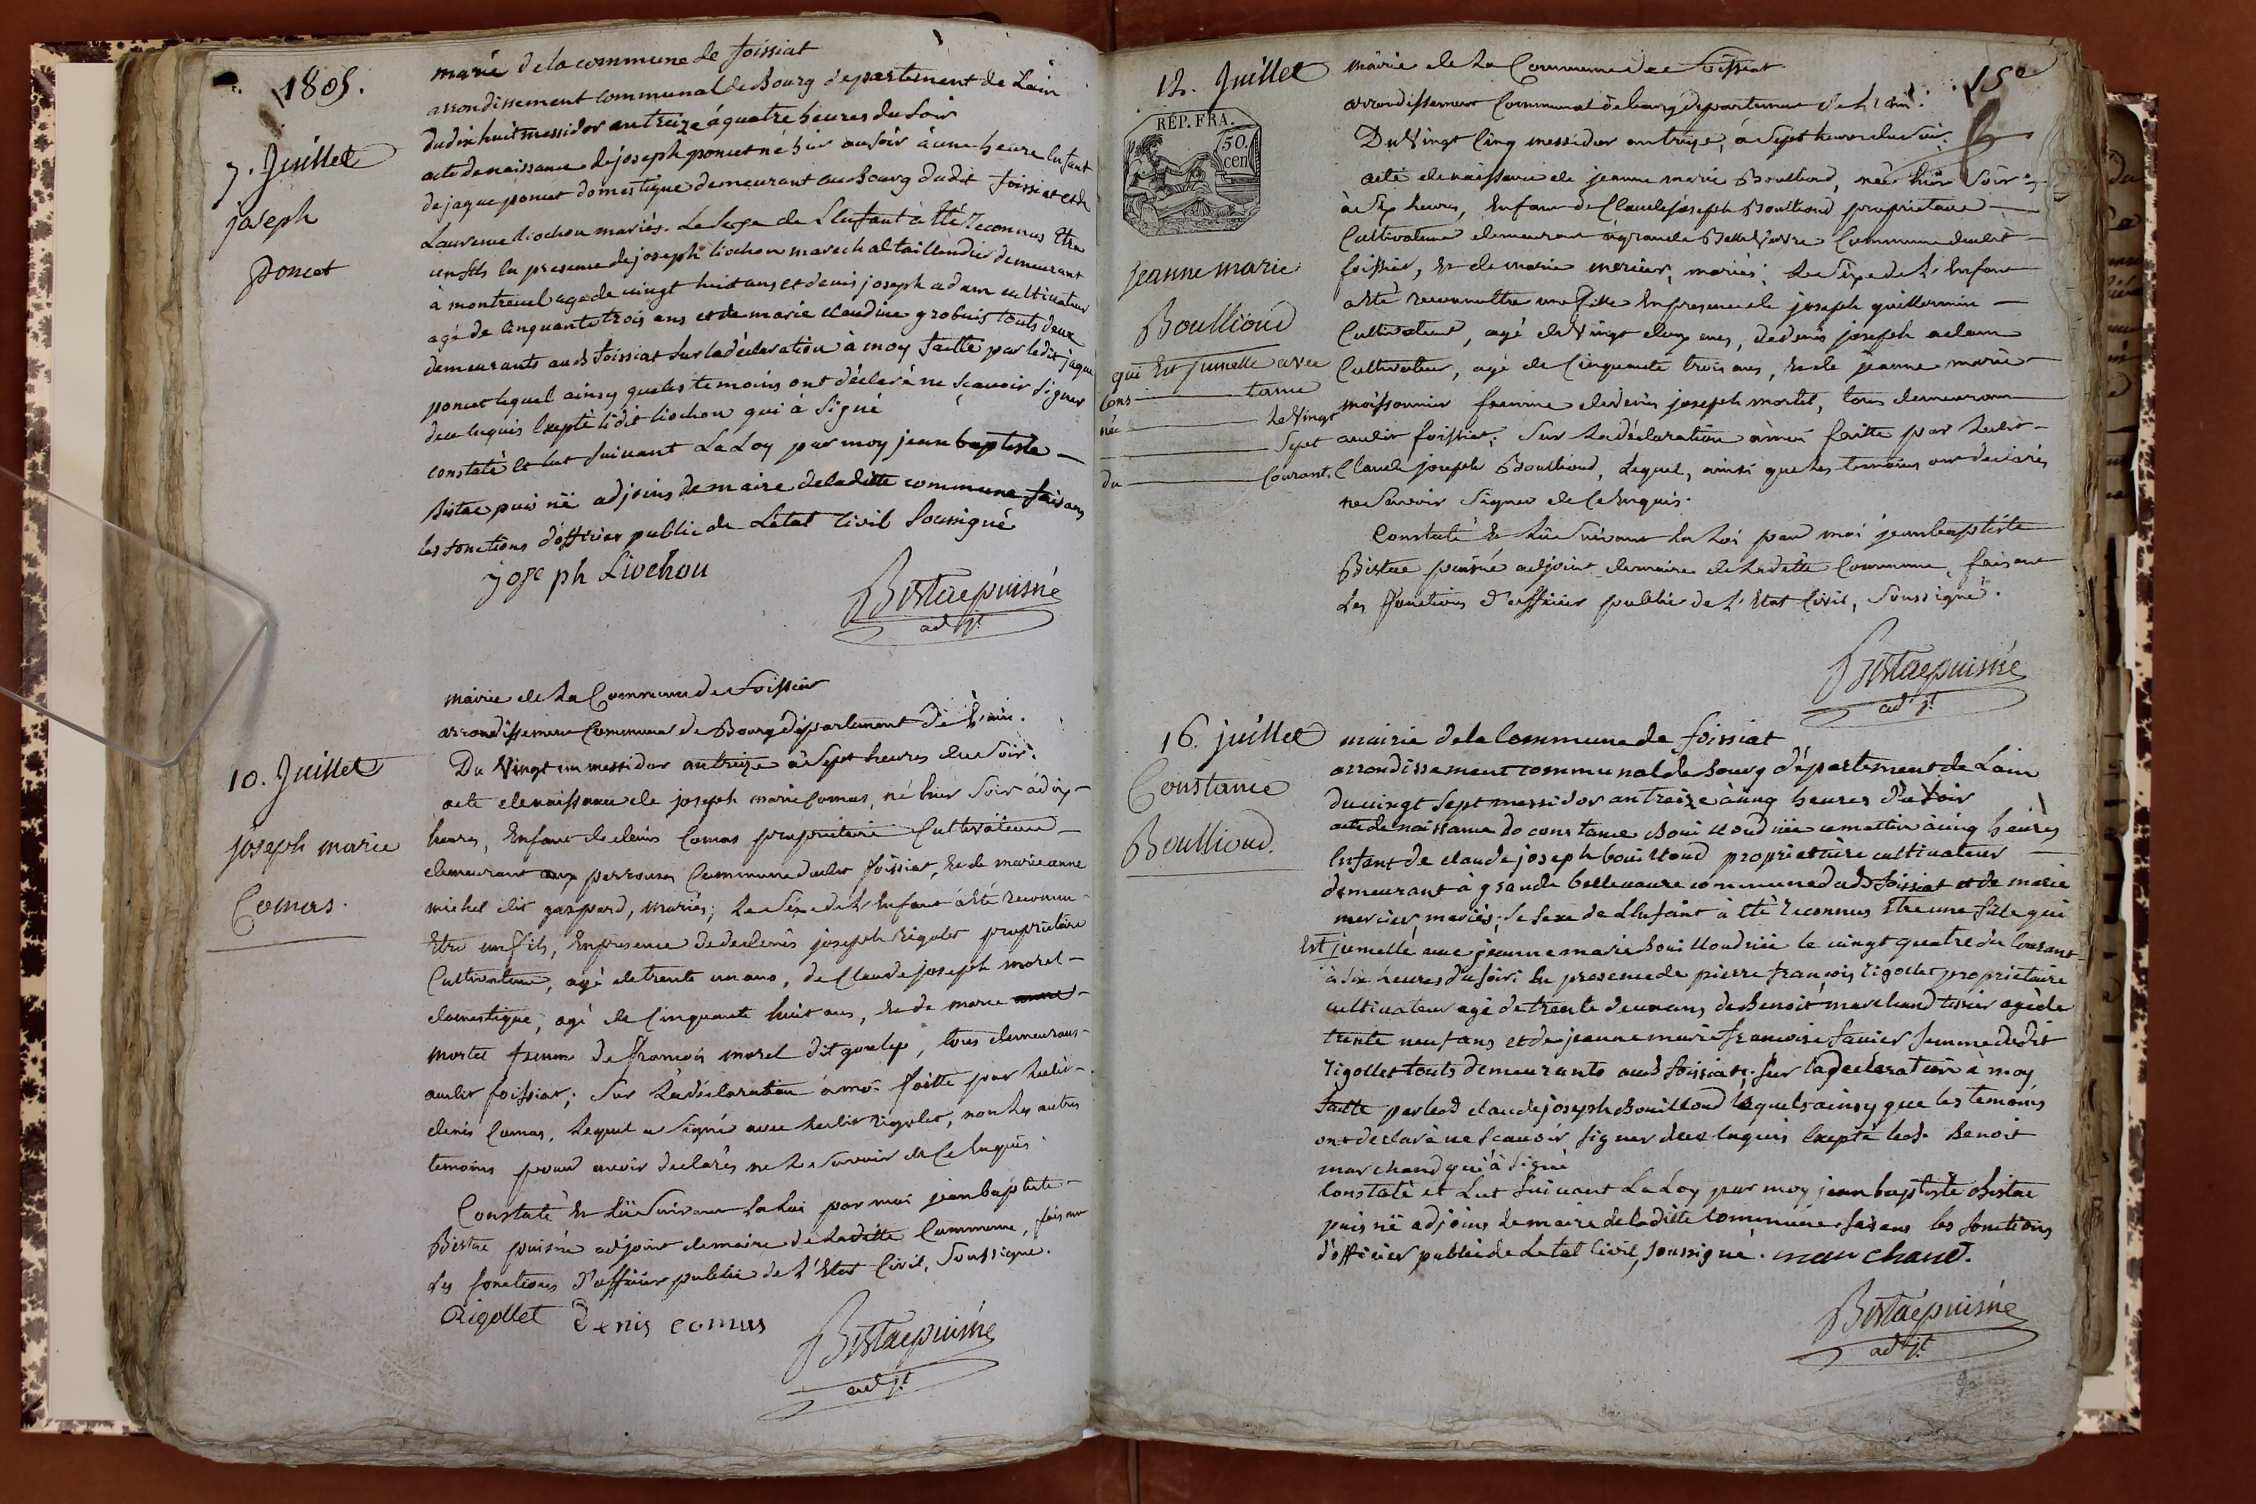 1805.
7. Juillet
joseph
poncet
marie de la commune de foissiat
arrondissement communal de Bourg departement de Lain
du dix huit messidor an treize à quatre heures du Soir
acte de naissance de joseph poncet né hier au soir à une heure Enfant
de jaque poncet domestique demeurant au Bourg dudit foissiat et de
Laurence Liochon mariés. Le Sexe de L'enfant à Eté Reconnus Etre
un fils En presence de joseph Liochon marechal taillandier demeurant
à montrevel age de vingt huit ans et denis joseph adam cultivateur
agé de Cinquante trois ans et de marie claudine grobuis touts deux
demeurants aud foissiat Sur la déclaration à moy faitte par ledit jaque
poncet lequel ainsy que les temoins ont déclaré ne sçavoir Signer
de ce Enquis Excepté ledit Liochon qui à Signé
constaté et Lut Suivant La Loy par moy jean baptiste
Bistac puisné adjoins de maire de laditte commune faisans
les fonctions d'officier public de L'état Civil Soussigné
joseph Liochon
Bistac puisné
adjt
10. Juillet
joseph marie
Comas.
mairie de La Commune de foissiat
arrondissement Communal de Bourg département de L'ain.
Du Vingt un messidor an treize à Sept heures du Soir.
acte de naissance de joseph marie Comas, né hier Soir à dix
heures, Enfant de denis Comas propriétaire Cultivateur
demeurant aux perrouses Commune dudit foissiat, Et de marie anne
michel dit gaspard, mariés; Le Séxe de L'Enfant à Eté reconnu
Etre un fils, En presence de denis joseph Rigolet propriétaire
Cultivateur, agé de trente un ans, de Claude joseph morel
domestique, agé de Cinquante huit ans, Et de marie anne
mortel femme de françois morel dit goulye, tous demeurans
audit foissiat; Sur La déclaration à moi faitte par Ledit
denis Comas, Lequel a Signé avec Ledit rigolet, non Les autres
temoins pour avoir declarés ne Le Savoir de Ce Enquis.
Constaté Et Lû Suivant La Loi par moi jean baptiste
Bistac puisné adjoint de maire de Laditte Commune, faisant
Les fonctions d'officier public de L'Etat Civil, Soussigné.
Rigollet Denis comas
Bistac puisné
adjt
15e
13. Juillet
REP. FRA.
50.
cen
Jeanne marie
Boullioud
qui Est jumelle avec
Cons tance
née Le Vingt
Sept
du Courant.
mairie de La Commune de foissiat
arrondissement Communal de bourg département de L'ain.
Du Vingt Cinq messidor an treize, à Sept heures du Soir.
acte de naissance de jeanne marie Boullioud, née hier Soir
à dix heures, Enfant de Claude joseph Boullioud propriétaire
Cultivateur demeurant à grande Bellevavre Commune dudit
foissiat, Et de marie mercier, mariés; Le Séxe de L'Enfant
a Eté reconnu Etre une fille En presence de joseph guillermin
Cultivateur, agé de Vingt deux ans, de denis joseph adam
Cultivateur, agé de Cinquante trois ans, Et de jeanne marie
moissonnier femme de denis joseph mortel, tous demeurans
audit foissiat; Sur La déclaration à moi faitte par Ledit
Claude joseph Boullioud, Lequel, ainsi que Les temoins ont déclarés
ne Savoir Signer de Ce Enquis.
Constaté Et Lû Suivant La Loi par moi jean baptiste
Bistac puisné adjoint de maire de Laditte Commune, faisant
Les fonctions d'officier public de L'Etat Civil, Soussigné.
Bistac puisné
adjt
16. juillet
Constance
Boullioud.
mairie de la Commune de foissiat
arrondissement communal de bourg département de Lain
du vingt Sept messidor an treize à cinq heures du Soir
acte de naissance de constance Bouilloud née ce mattin à cinq heures
Enfant de claude joseph bouilloud proprietaire cultivateur
demeurant à grande bellevavre commune dud foissiat et de marie
mercier, mariés; le Sexe de L'Enfant à Eté Reconnus Etre une fille qui
Est jumelle avec jeanne marie bouilloud née le vingt quatre du Courant
à dix heures du Soir: En presence de pierre françois Rigollet proprietaire
cultivateur agé de trente deux ans, de Benoit marchand tissier agé de
trente neuf ans et de jeanne marie françoise favier femme dudit
Rigollet touts demeurants aud foissiat; Sur la declaration à moy
faitte par led claude joseph Bouilloud lequel ainsy que les temoins
ont declaré ne Scavoir Signer de ce Enquis Excepté led. Benoit
marchand qui à Signé
Constaté et Lut Suivant La Loy par moy jean baptiste Bistac
puisné adjoins de maire de laditte Commune faisans les fonctions
d'officier public de Letat Civil, Soussigné. marchand.
Bistac puisné
adjt